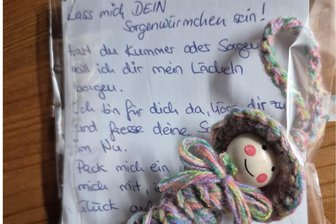 Lass mich DEIN
Sorgenwürmchen sein!
Hast du Kummer oder Sorgen
will ich dir mein Lächeln
borgen.
Ich bin für dich da, hör dir zu
und fresse deine
im Nu.
Pack mich ein
mich mit,
Glück